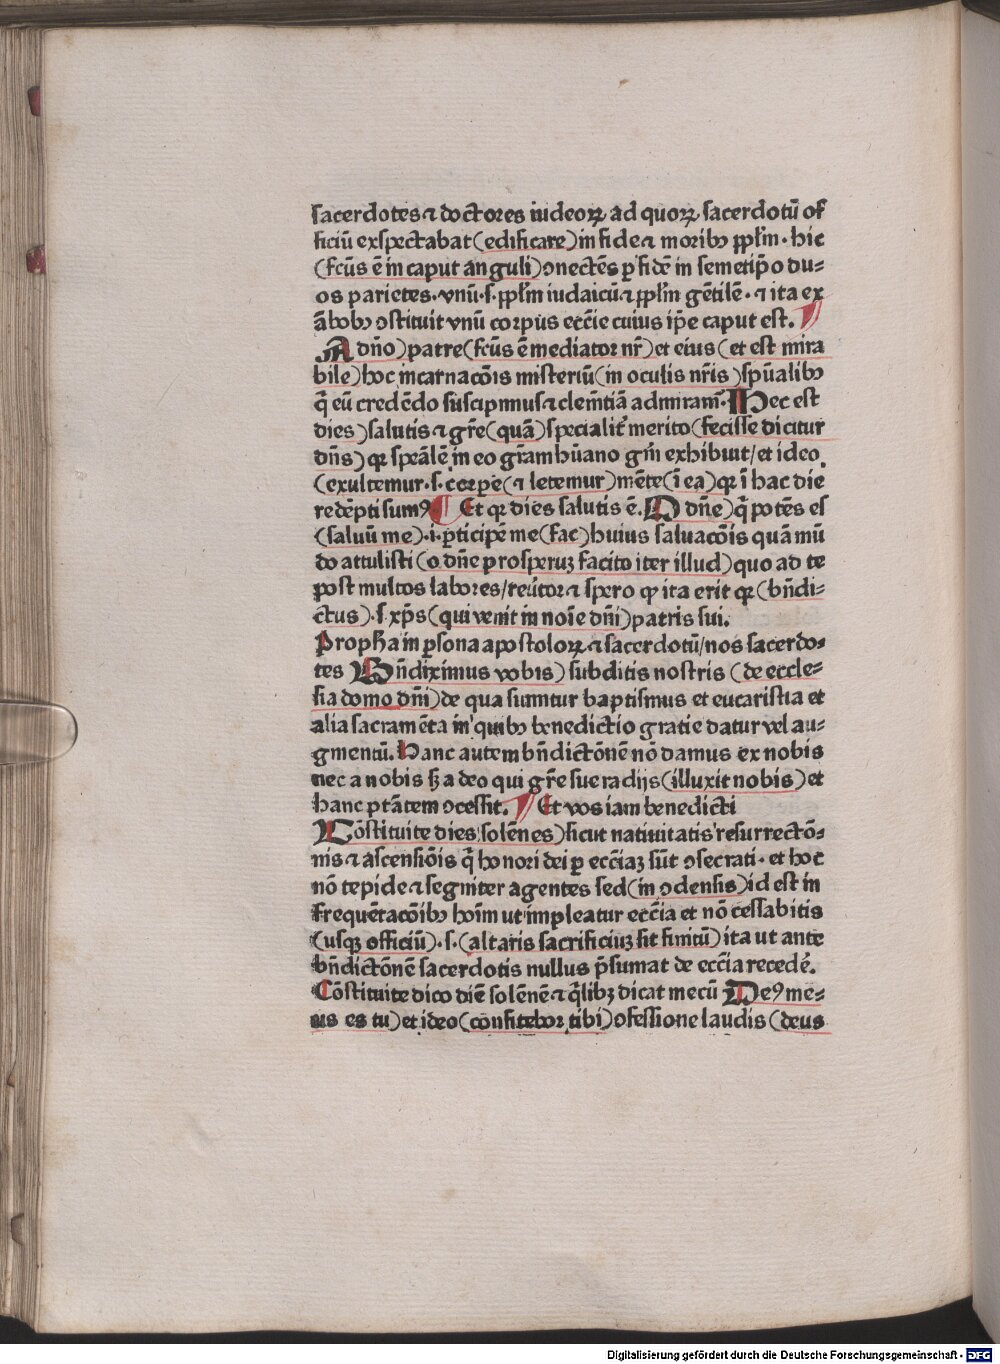 sacerdotes ⁊ doctores iudeoꝝ, ad quoꝝ, sacerdotū of
ficiū exspectabat (edificare) in fide ⁊ moribꝫ pp̄lm̄ · hic
(fc̄us ē in caput anguli) ↄnectēs ꝑ fidē in semetip̄o du⸗
os parietes · vnū · s · pp̄lm̄ iudaicū ⁊ pp̄lm̄ gētilē · ⁊ ita ex
ābobꝫ ↄstituit vnū corpus ecc̄ie cuius ip̄e caput est. ¶
A dn̄o) patre (fc̄us ē mediator nr̄) et eius (et est mira
bile) hoc incarnacōis misteriū (in oculis nr̄is) sp̄ualibꝫ
q̄ eū credēdo suscipimus ⁊ clemn̄tiā admiramꝰ · Hec est
dies) salutis ⁊ gr̄e (quā) specialit̄ merito (fecisse dicitur
dn̄s) qꝛ speālē in eo gr̄am hūano gn̄i exhibuit / et ideo
(exultemur · s · corpe (⁊ letemur) mēte (ī ea) qꝛ ī hac die
redēpti sumꝰ ¶ Et qꝛ dies salutis ē. O dn̄e) q̄ potēs es
(saluū me) · i · ꝑticipē me (fac) huius saluacōis quā mū
do attulisti (o dn̄e prosperuꝫ facito iter illud) quo ad te
post multos labores / reūtor ⁊ spero ꝙ ita erit qꝛ (bn̄di⸗
ctus) · s · xp̄s (qui venit in noīe dn̄i) patris sui.
Propħa in ꝑsona apostoloꝝ ⁊ sacerdotū / nos sacerdo⸗
tes Bn̄diximus vobis) subditis nostris (de eccle⸗
sia domo dn̄i) de qua sumūtur baptismus et eucaristia et
alia sacramēta in quibꝫ benedictio gratie datur vel au⸗
gmentū. Hanc autem bn̄dictōnē nō damus ex nobis
nec a nobis sꝫ a deo qui gr̄e sue radijs (illuxit nobis) et
hanc ptātem ↄcessit. ¶ Et vos iam benedicti
Cōstituite dies solēnes) sicut natiuitatis resurrectō⸗
nis ⁊ ascensiōis q̄ honori dei ꝑ ecc̄iaꝫ sūt ↄsecrati · et hoc
nō tepide ⁊ segniter agentes sed (in ↄdensis) id est in
frequētacōibꝫ hoīm ut impleatur ecc̄ia et nō cessabitis
(usqꝫ officiū) · s · (altaris sacrificiuꝫ sit finitū) ita ut ante
bn̄dictōnē sacerdotis nullus p̄sumat de ecc̄ia recedē.
Cōstituite dico diē solēnē ⁊ q̄libꝫ dicat mecū Deꝰ me⸗
us es tu) et ideo (confitebor tibi) ↄfessione laudis (deus
Digitalisierung gefördert durch die Deutsche Forschungsgemeinschaft - DFG